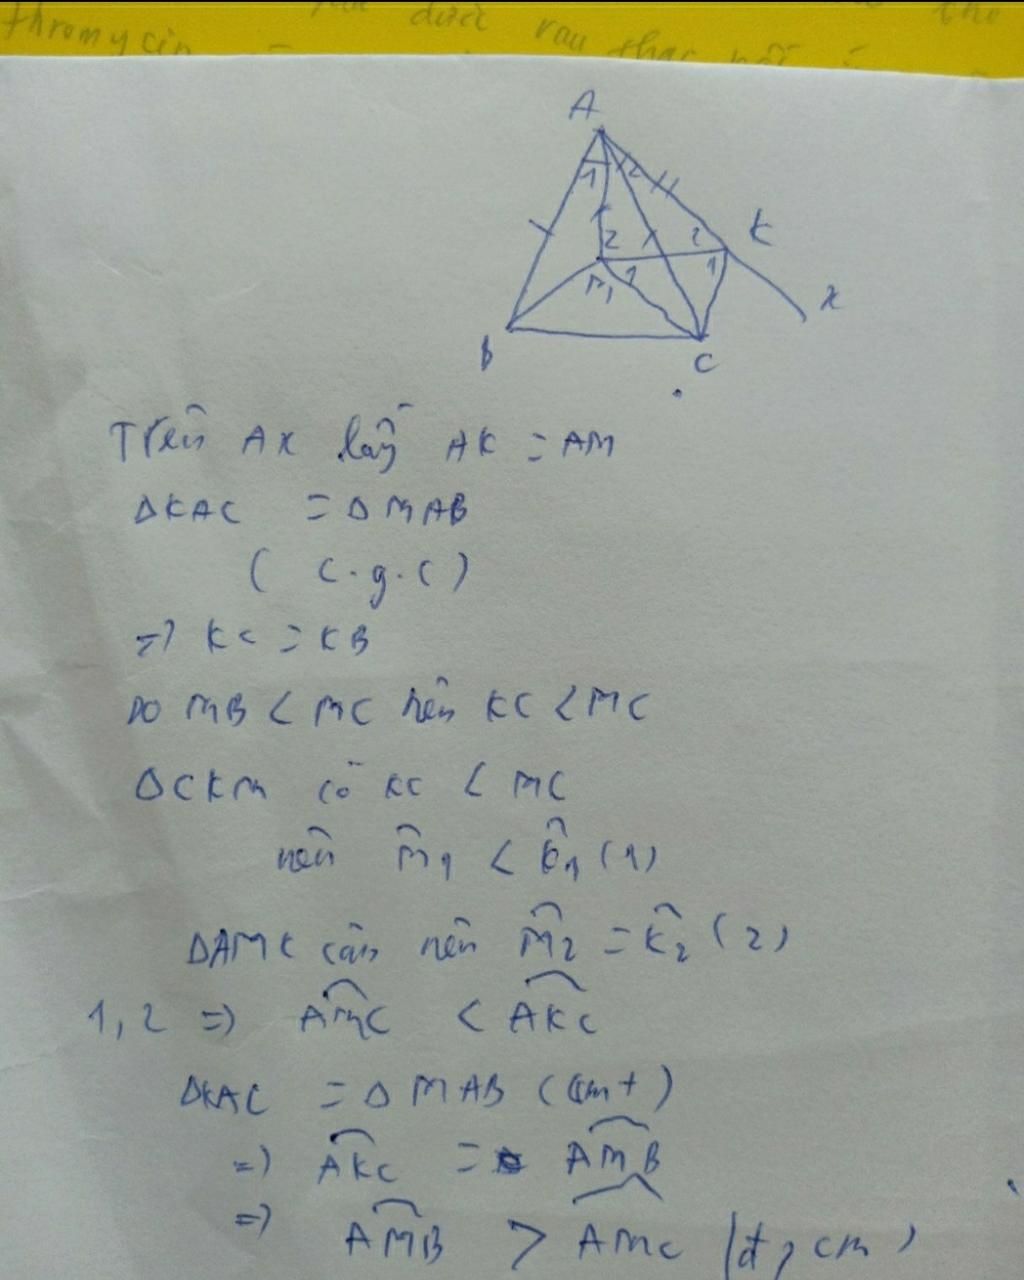 thromycin
được rau
A
1 2
K
2 2
1 1
M
x
B
C
Trên Ax lấy AK = AM
ΔKAC = ΔMAB
( c.g.c)
=> KC = KB
Do MB < MC nên KC < MC
ΔCKM có KC < MC
nên M̂1 < K̂1 (1)
ΔAMK cân nên M̂2 = K̂2 (2)
1, 2 => AMC < AKC
ΔKAC = ΔMAB (cmt)
=> AKC = AMB
=> AMB > AMC (đpcm)